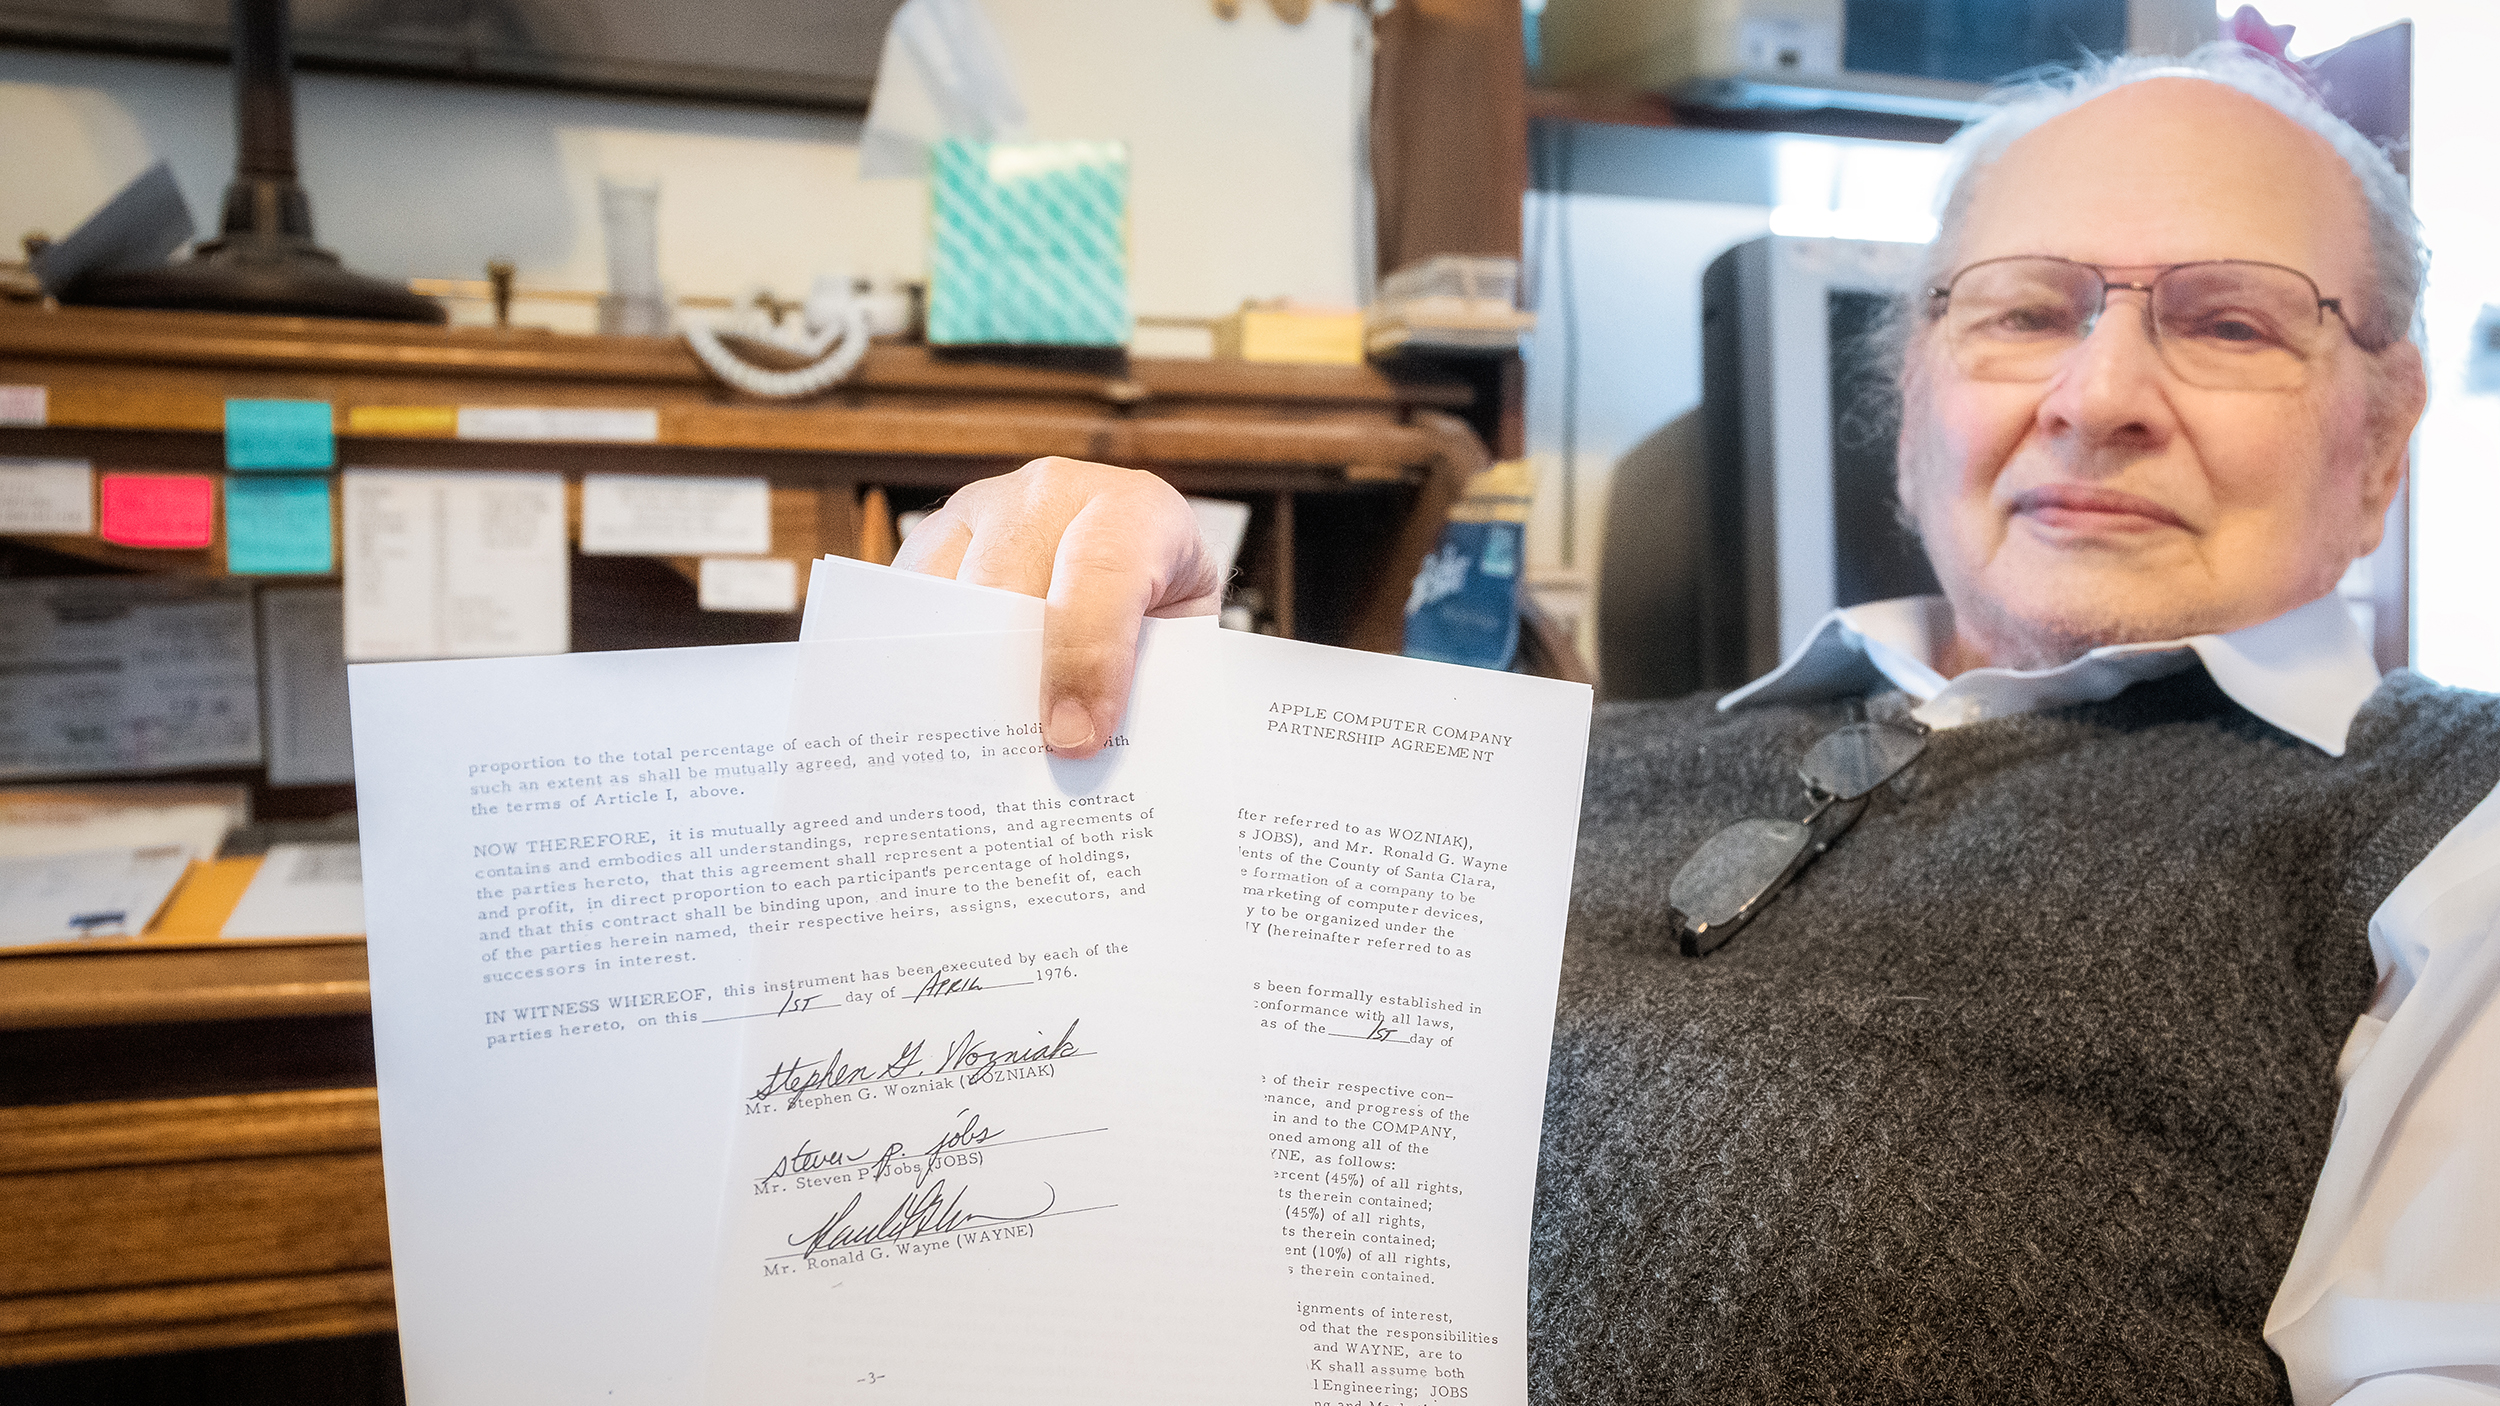 proportion to the total percentage of each of their respective holdi
such an extent as shall be mutually agreed, and voted to, in accord with
the terms of Article I, above.
NOW THEREFORE, it is mutually agreed and understood, that this contract
contains and embodies all understandings, representations, and agreements of
the parties hereto, that this agreement shall represent a potential of both risk
and profit, in direct proportion to each participant's percentage of holdings,
and that this contract shall be binding upon, and inure to the benefit of, each
of the parties herein named, their respective heirs, assigns, executors, and
successors in interest.
IN WITNESS WHEREOF, this instrument has been executed by each of the
parties hereto, on this 1ST day of APRIL 1976.
Stephen G. Wozniak
Mr. Stephen G. Wozniak (WOZNIAK)
steven p. jobs
Mr. Steven P. Jobs (JOBS)
Mr. Ronald G. Wayne (WAYNE)
-3-
APPLE COMPUTER COMPANY
PARTNERSHIP AGREEMENT
fter referred to as WOZNIAK),
s JOBS), and Mr. Ronald G. Wayne
ents of the County of Santa Clara,
e formation of a company to be
marketing of computer devices,
y to be organized under the
Y (hereinafter referred to as
s been formally established in
conformance with all laws,
as of the 1ST day of
of their respective con-
enance, and progress of the
in and to the COMPANY,
oned among all of the
YNE, as follows:
ercent (45%) of all rights,
ts therein contained;
(45%) of all rights,
ts therein contained;
ent (10%) of all rights,
s therein contained.
ignments of interest,
od that the responsibilities
and WAYNE, are to
K shall assume both
l Engineering; JOBS